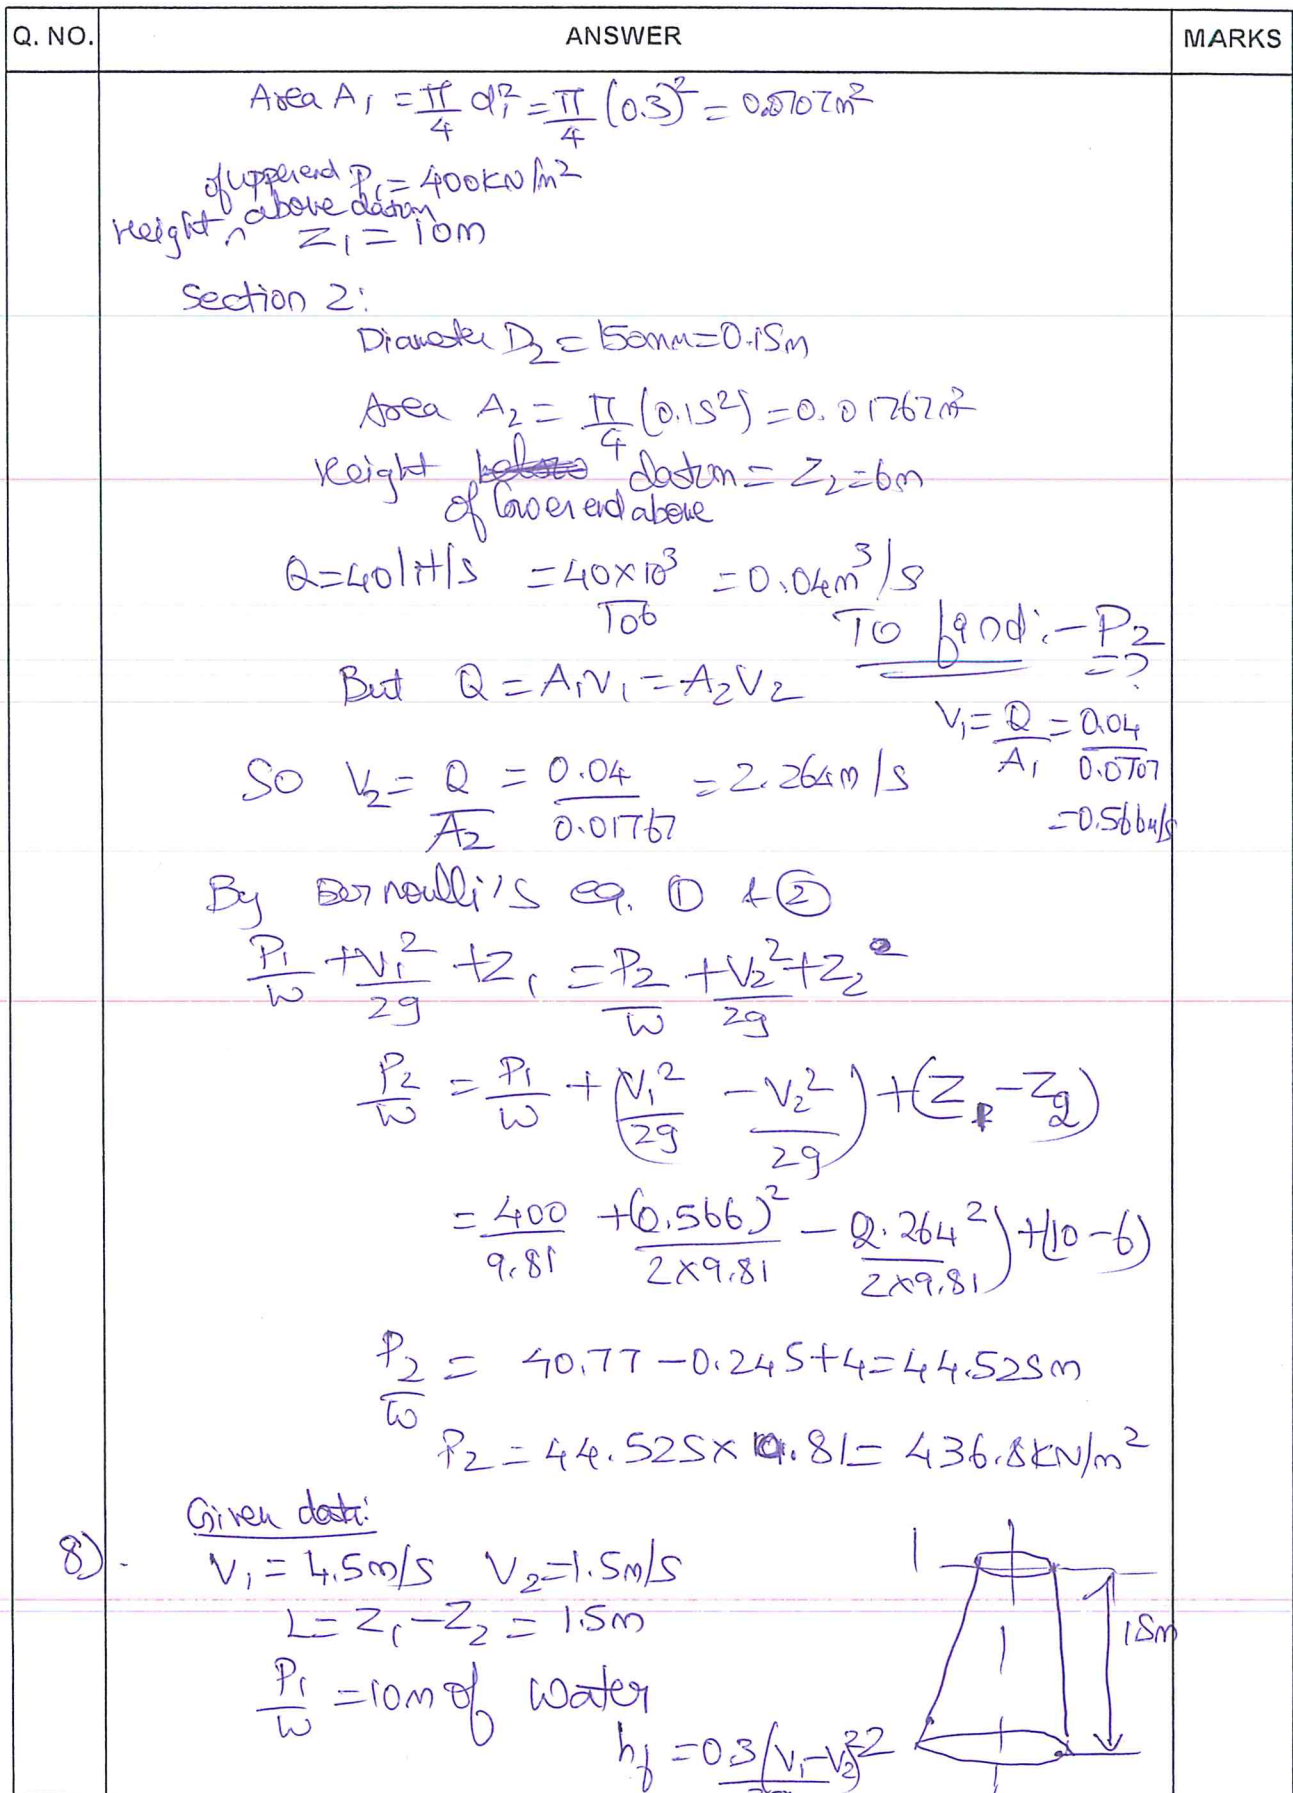 Q. NO. ANSWER MARKS
Area A₁ = π/4 d₁² = π/4 (0.3)² = 0.0707m²
of upper end P₁ = 400KN/m²
Height ^ above datum Z₁ = 10m
Section 2:
Diameter D₂ = 150mm = 0.15m
Area A₂ = π/4 (0.15²) = 0.01767m²
Height datum = Z₂ = 6m
of lower end above
Q = 40lit/s = 40×10³/10⁶ = 0.04m³/s
To find :- P₂ = ?
But Q = A₁V₁ = A₂V₂
V₁ = Q/A₁ = 0.04/0.0707 = 0.566m/s
So V₂ = Q/A₂ = 0.04/0.01767 = 2.264m/s
By Bernoulli's eq. ① & ②
P₁/w + V₁²/2g + Z₁ = P₂/w + V₂²/2g + Z₂
P₂/w = P₁/w + (V₁²/2g - V₂²/2g) + (Z₁ - Z₂)
= 400/9.81 + (0.566)²/2×9.81 - 2.264²/2×9.81) + (10-6)
P₂/w = 40.77 - 0.245 + 4 = 44.525m
P₂ = 44.525 × 9.81 = 436.8KN/m²
Given data:
8). V₁ = 4.5m/s V₂ = 1.5m/s
L = Z₁ - Z₂ = 1.5m
P₁/w = 10m of water
1
1.5m
h_f = 0.3(V₁-V₂)²